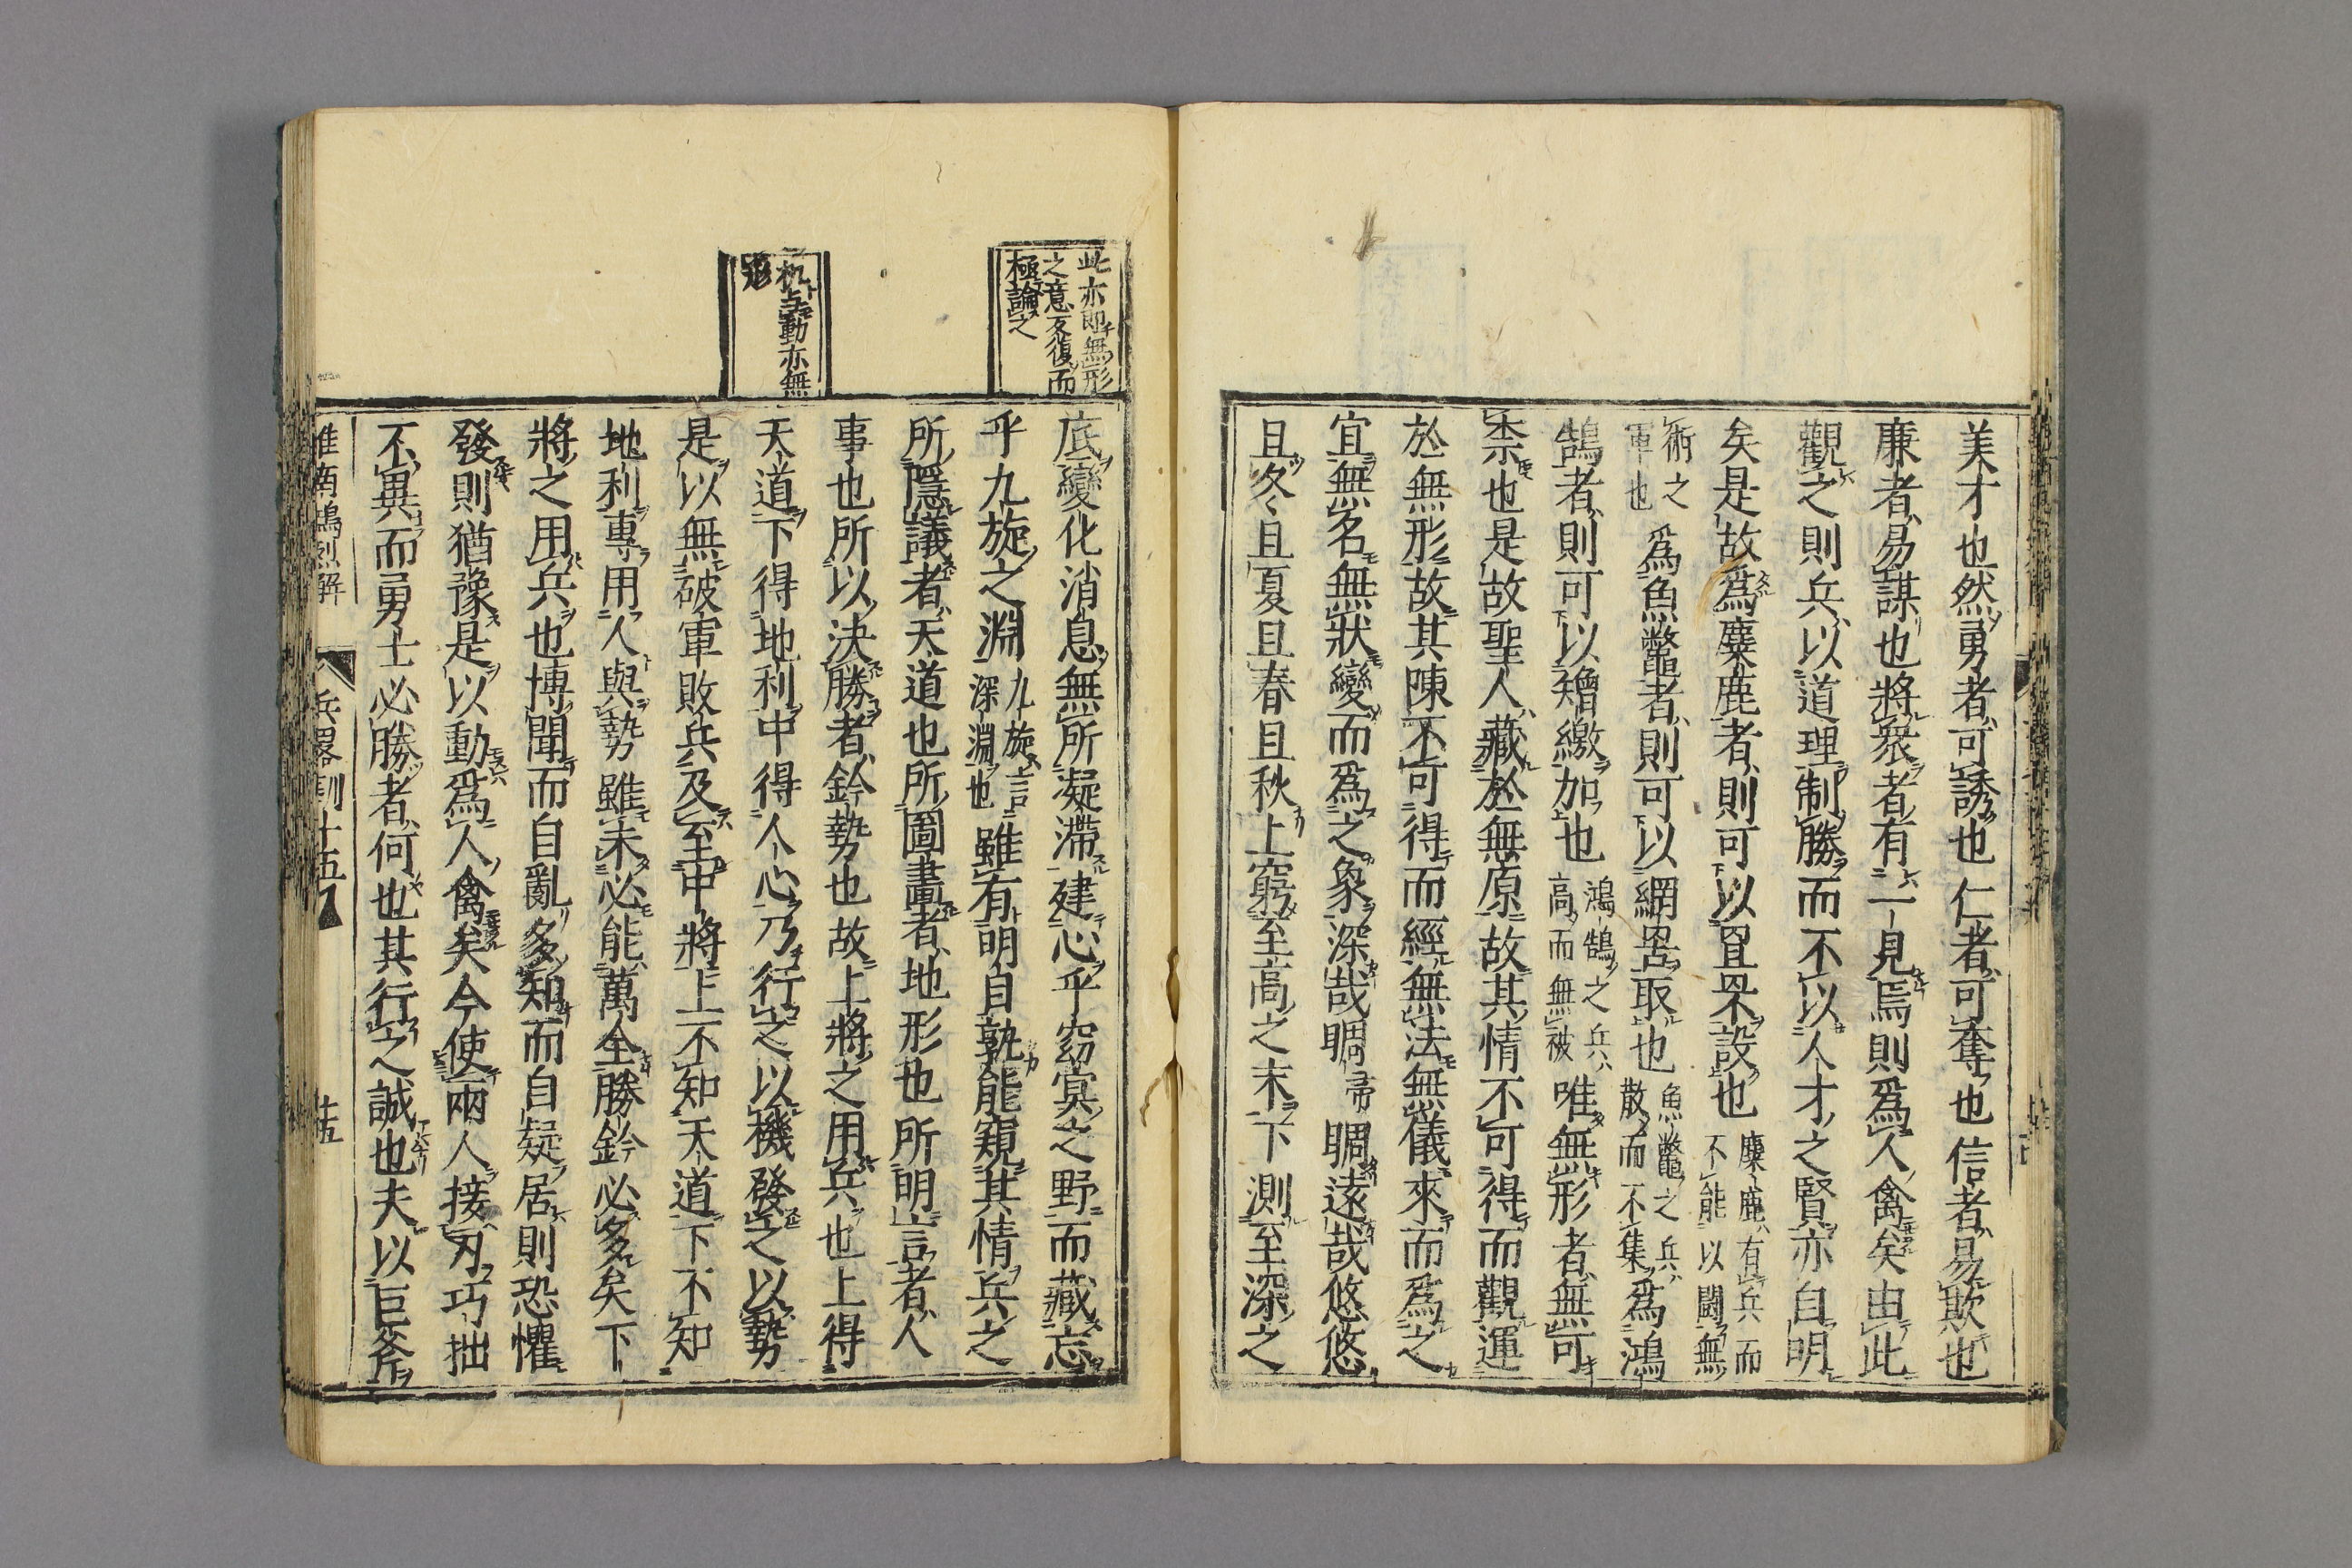 美才也然勇者可誘也仁者可奪也信者易欺也
廉者易謀也將衆者有一見焉則爲人禽矣由此
觀之則兵以道理制勝而不以人才之賢亦自明
矣是故爲麋鹿者則可以罝罘設也麋鹿有兵而不能以鬪無
術之軍也爲魚鼈者則可以網罟取也魚鼈之兵散而不集爲鴻
鵠者則可以矰繳加也鴻鵠之兵高而無被唯無形者無可
柰也是故聖人藏於無原故其情不可得而觀運
於無形故其陳不可得而經無法無儀來而爲之
宜無名無狀變而爲之象深哉睭睭遠哉悠悠
且冬且夏且春且秋上窮至高之末下測至深之
此亦即無形
之意反復而
極論之
机與動亦無
形
底變化消息無所凝滯建心乎窈冥之野而藏志
乎九旋之淵九旋言深淵也雖有明目孰能窺其情兵之
所隱議者天道也所圖畫者地形也所明言者人
事也所以決勝者鈐勢也故上將之用兵也上得
天道下得地利中得人心乃行之以機發之以勢
是以無破軍敗兵及至中將上不知天道下不知
地利專用人與勢雖未必能萬全勝鈐必多矣下
將之用兵也博聞而自亂多知而自疑居則恐懼
發則猶豫是以動爲人禽矣今使兩人接刃巧拙
不異而勇士必勝者何也其行之誠也夫以巨斧
淮南鴻烈解 兵畧訓十五 廿五